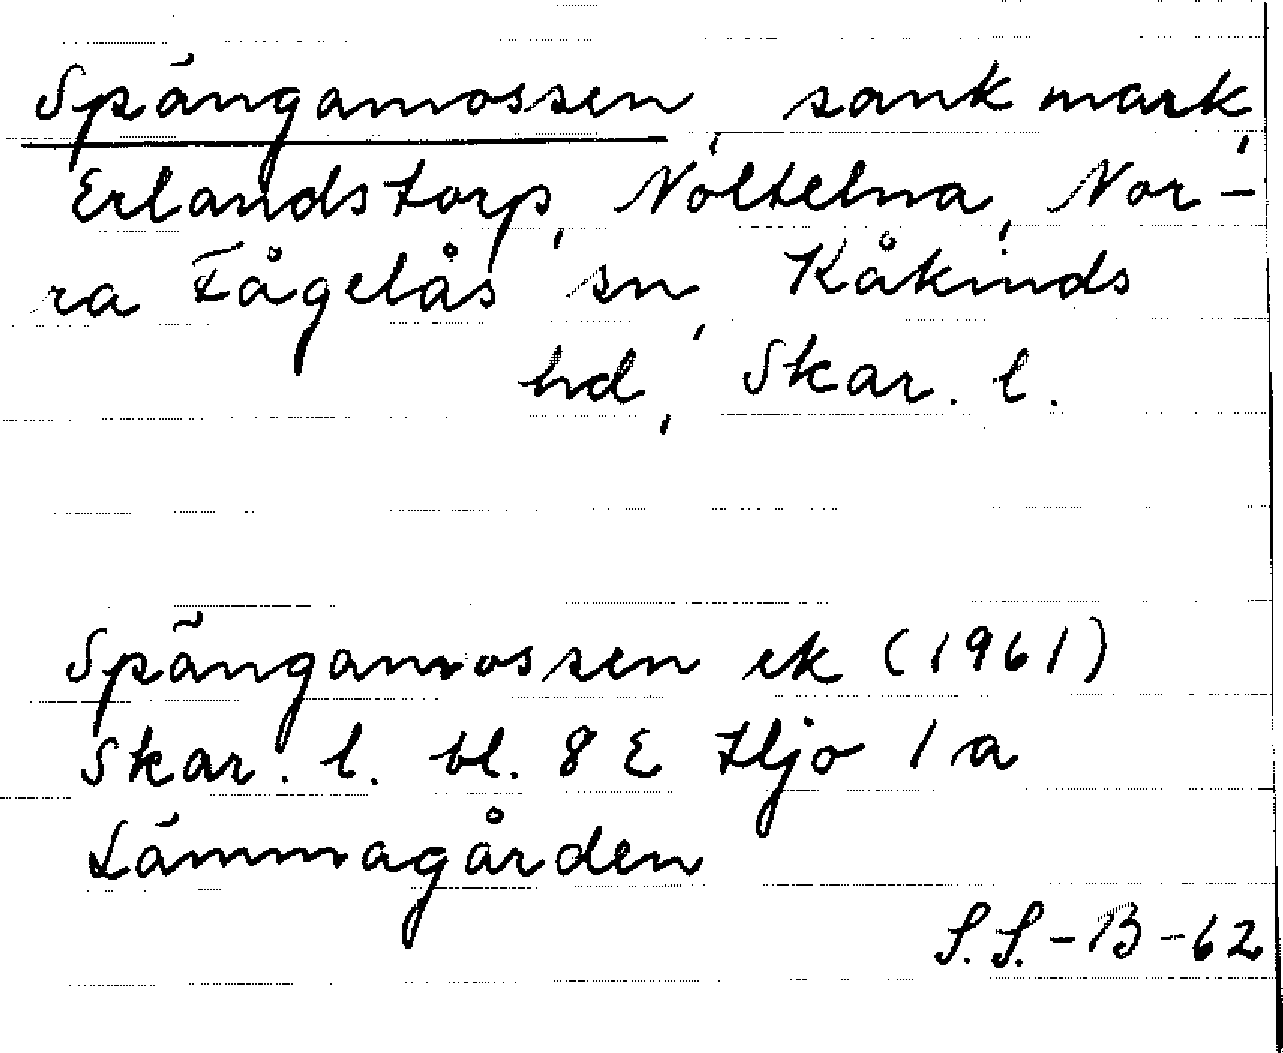 Spängamossen, sank mark,
Erlandstorp, Nöltelna, Nor-
ra Fågelås sn, Kåkinds
hd, Skar. l.
Spängamossen ek (1961)
Skar. l. bl. 8 E Hjo 1 a
Lämmagården
S.S.-B-62